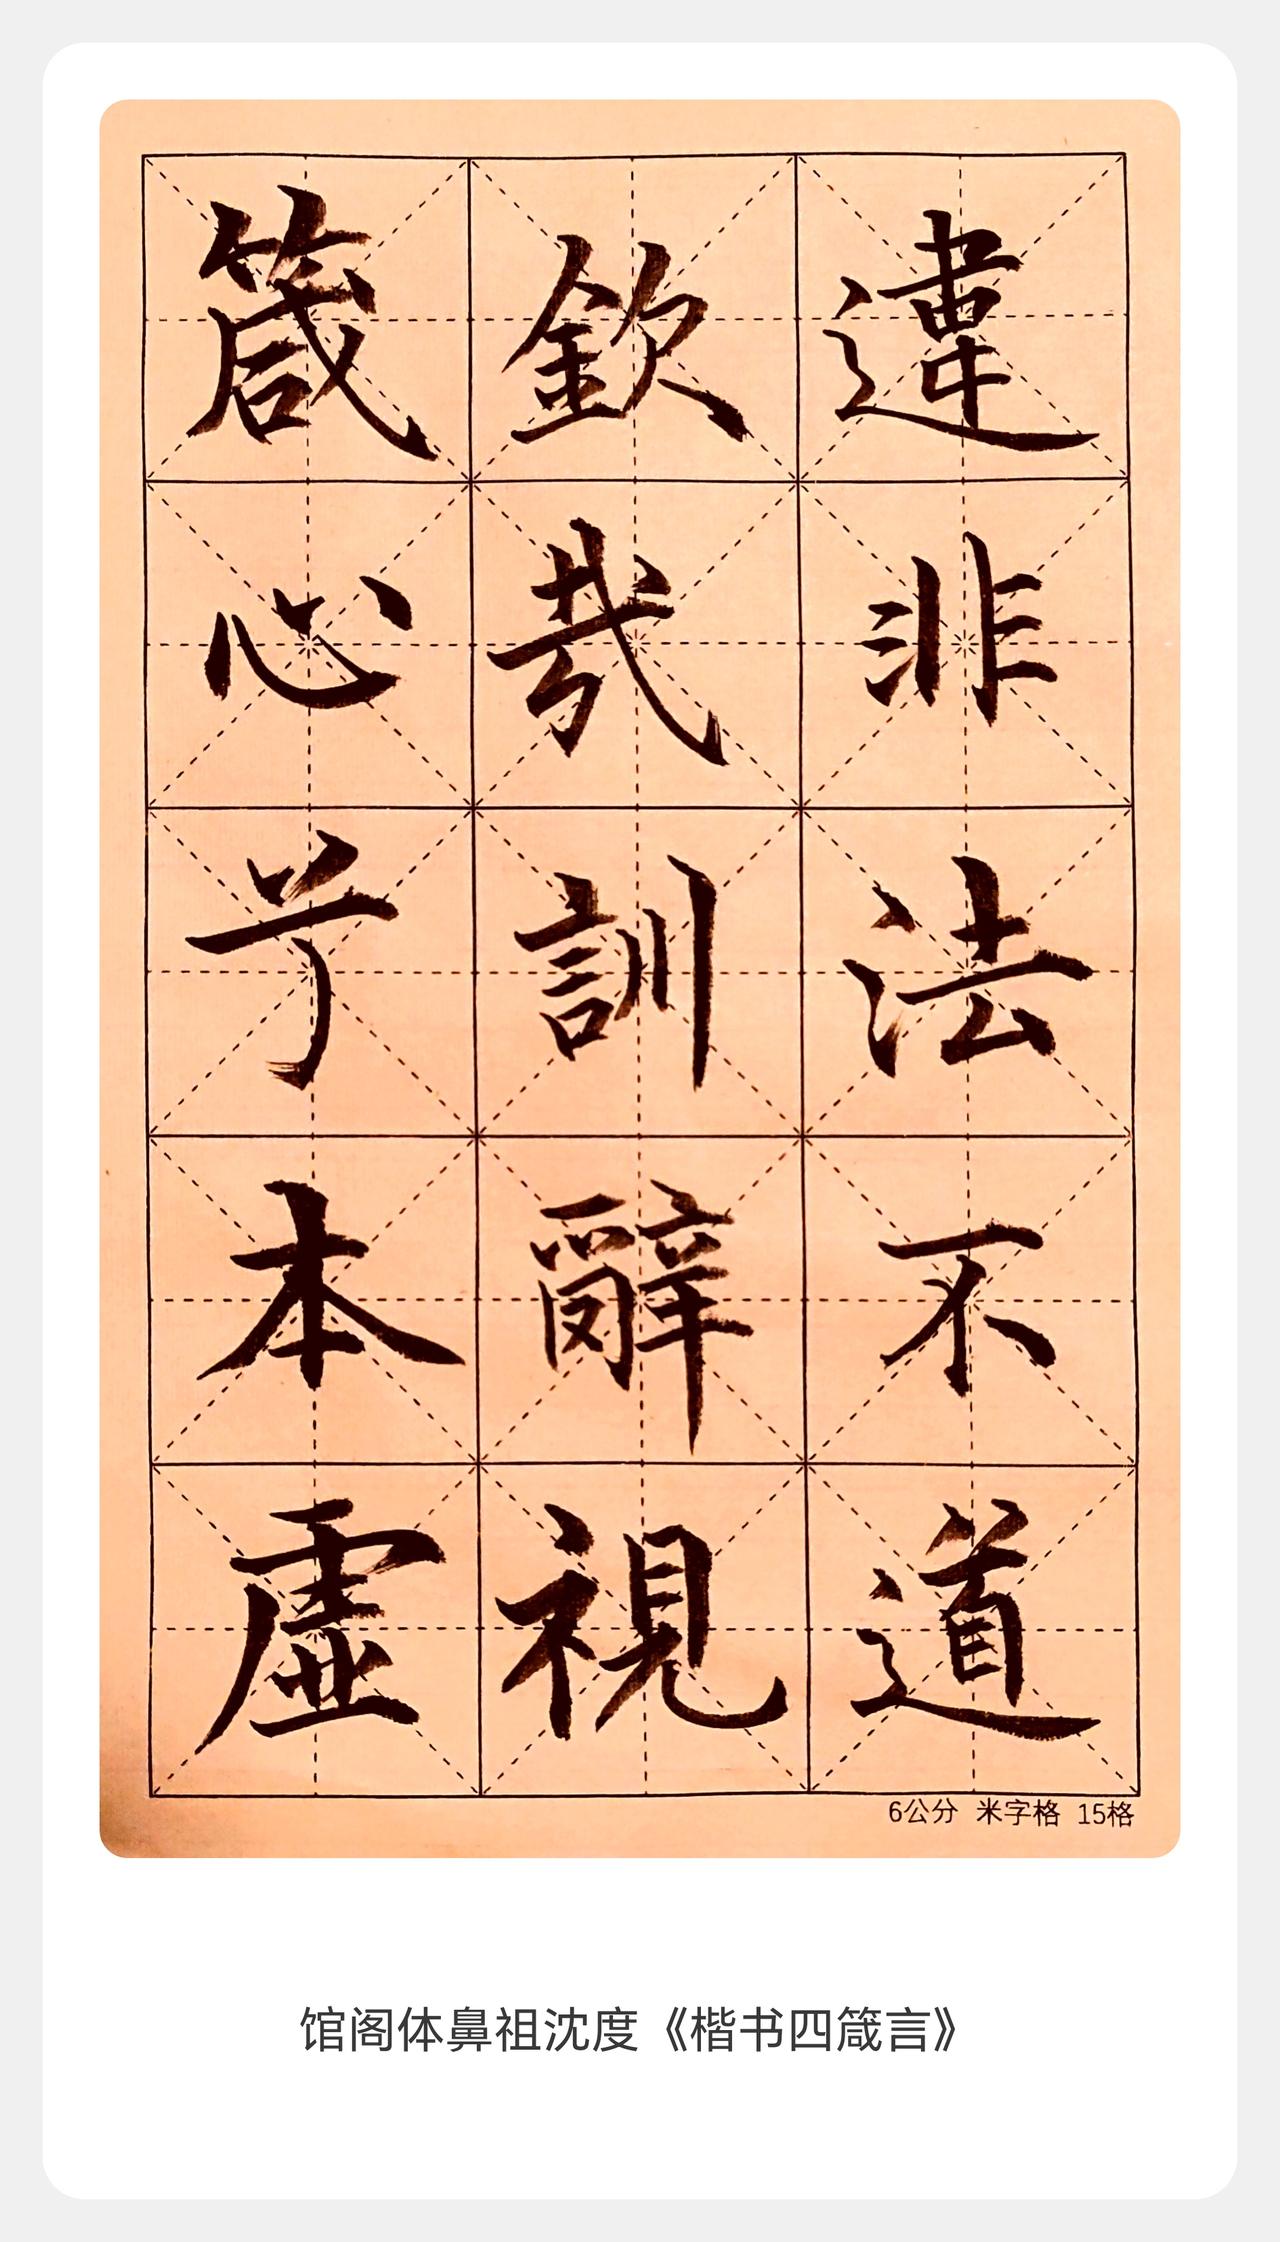 違非法不道
欽哉訓辭視
箴心兮本虛
6公分 米字格 15格
馆阁体鼻祖沈度《楷书四箴言》